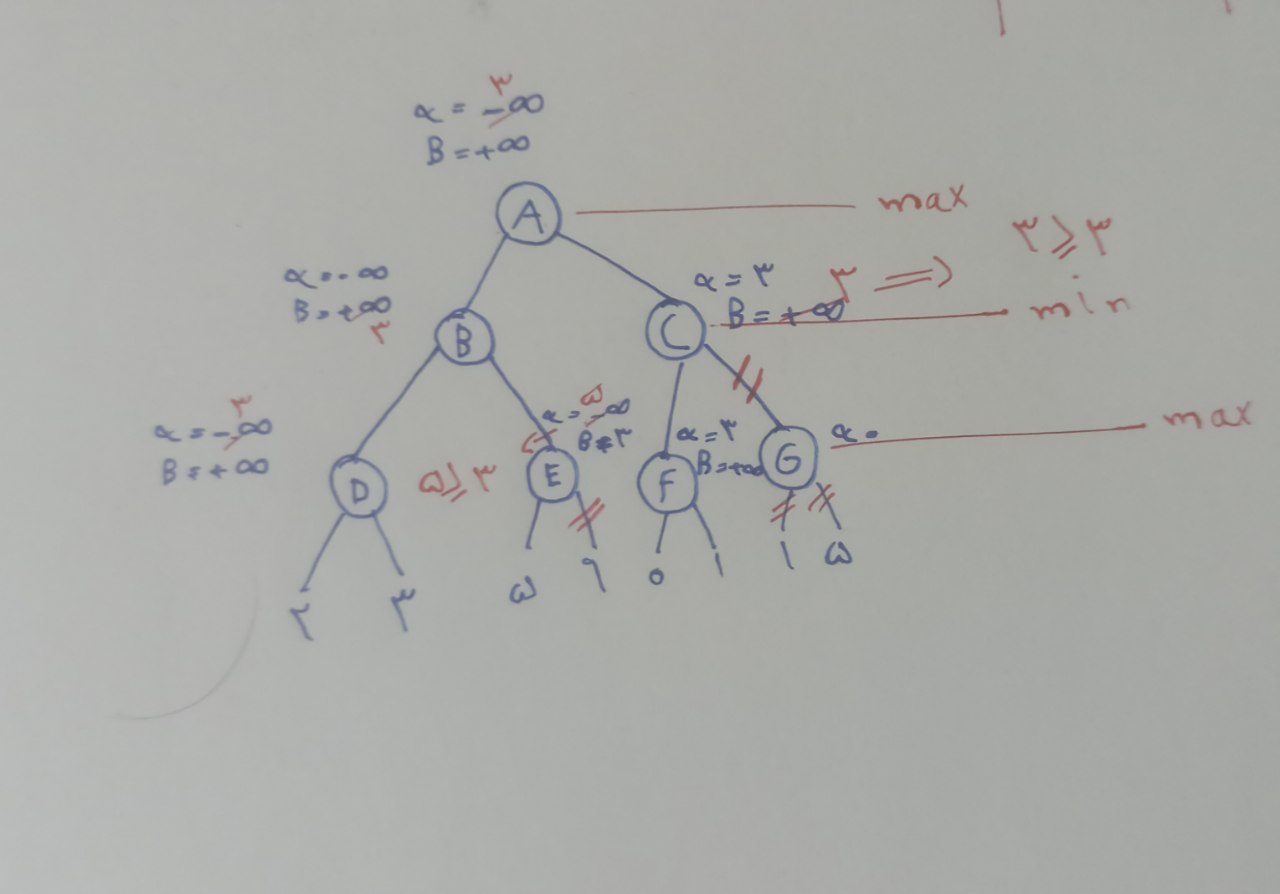 ۳
α = -∞
B = +∞
A
max
۳ ≥ ۳
α = -∞
B = +∞
۳
B
α = ۳
۳ ⇒
B = +∞
C
min
۳
α = -∞
B = +∞
D
۵ ≥ ۳
۵
α = -∞
B = ۳
E
α = ۳
B = +∞
F
G
α =
max
۲ ۳
۵ ۹ ۰ ۱ ۱ ۵